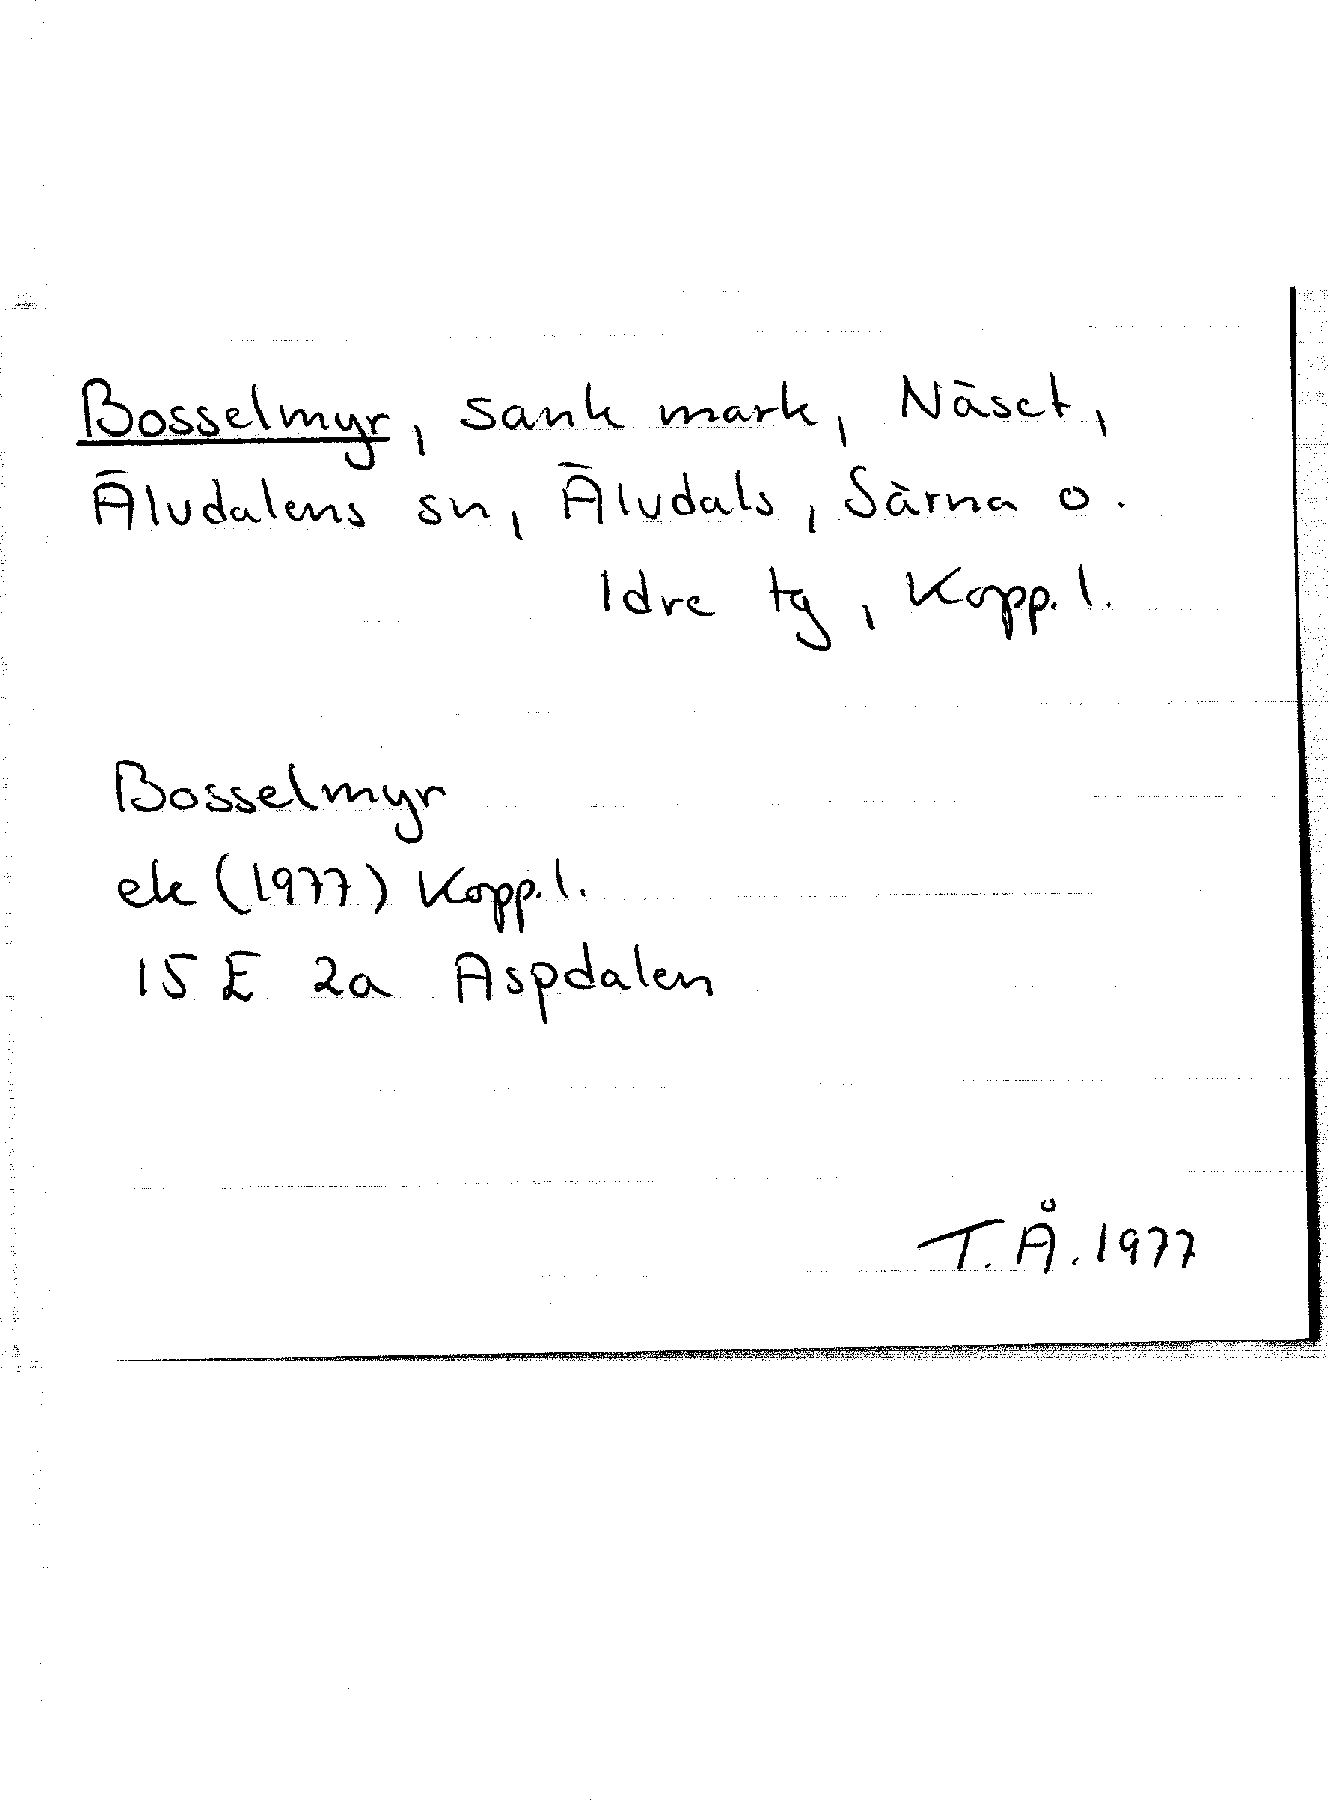 Bosselmyr, sank mark, Näset,
Älvdalens sn, Älvdals, Särna o.
Idre tg, Kopp.l.
Bosselmyr
ek (1977) Kopp.l.
15 E 2a Aspdalen
T.Å.1977